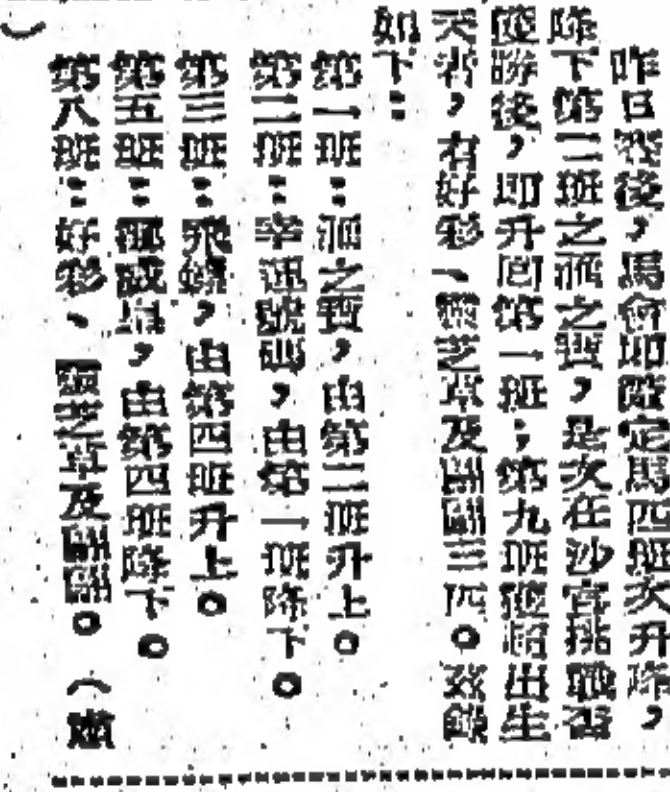 昨日賽後，馬會即釐定馬匹班次升降，
降下第二班之派之寶，是次在沙宣挑戰盃
獲勝後，即升回第一班；第九班獲超出生
天者，有好彩、靈芝草及關關三匹。茲錄
如下：
第一班：派之寶，由第二班升上。
第二班：幸運號碼，由第一班降下。
第三班：飛蝶，由第四班升上。
第五班：挪威皇，由第四班降下。
第八班：好彩、靈芝草及關關。（